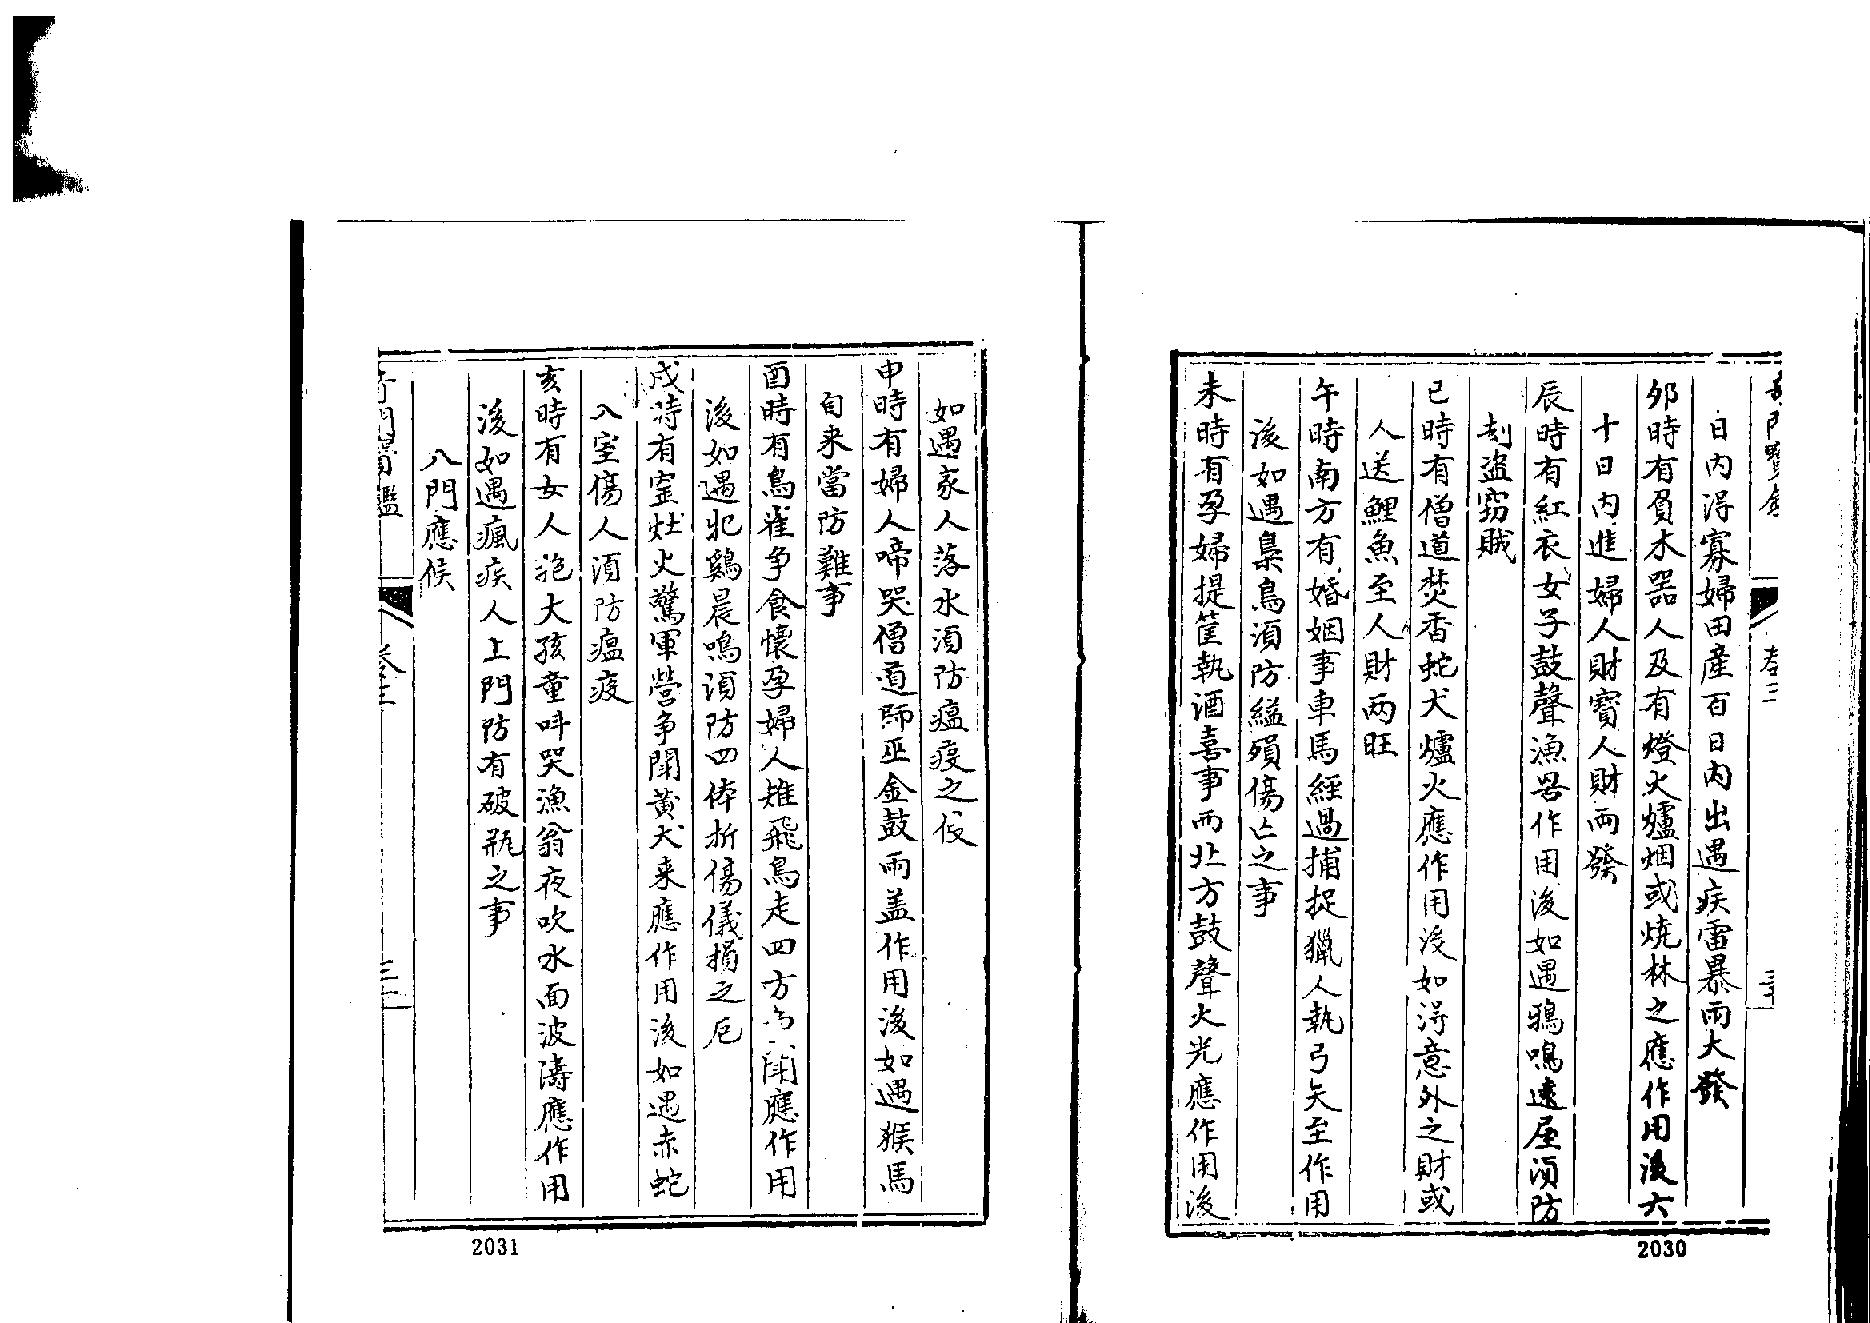 日內淂寡婦田産百日內出遇疾雷暴雨大發
夘時有負木器人及有燈火爐烟或燒林之應作用後六
十日內進婦人財寳人財兩發
辰時有紅衣女子鼓聲漁罟作用後如遇鴉鳴遶屋湏防
刦盗窃賊
巳時有僧道焚香蛇犬爐火應作用後如淂意外之財或
人送鯉魚至人財两旺
午時南方有婚姻事車馬經過捕捉獵人執弓矢至作用
後如遇梟鳥湏防縊殞傷亡之事
未時有孕婦提筐執酒喜事西北方鼓聲火光應作用後
2030
如遇家人落水湏防瘟疫之侵
申時有婦人啼哭僧道師巫金鼓雨盖作用後如遇猴馬
自来當防難事
酉時有鳥雀争食懷孕婦人雉飛鳥走四方 閙應作用
後如遇牝鷄晨鳴湏防四体折傷儀損之厄
戌時有窰灶火驚軍營争閙黄犬来應作用後如遇赤蛇
入室傷人湏防瘟疫
亥時有女人抱大孩童呌哭漁翁夜吹水面波濤應作用
後如遇瘋疾人上門防有破瓶之事
八門應候
奇門寳鑑 卷三
2031